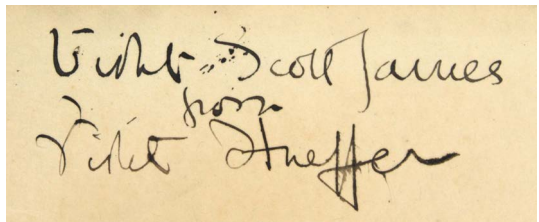 Violet Scott James
from
Violet Hueffer